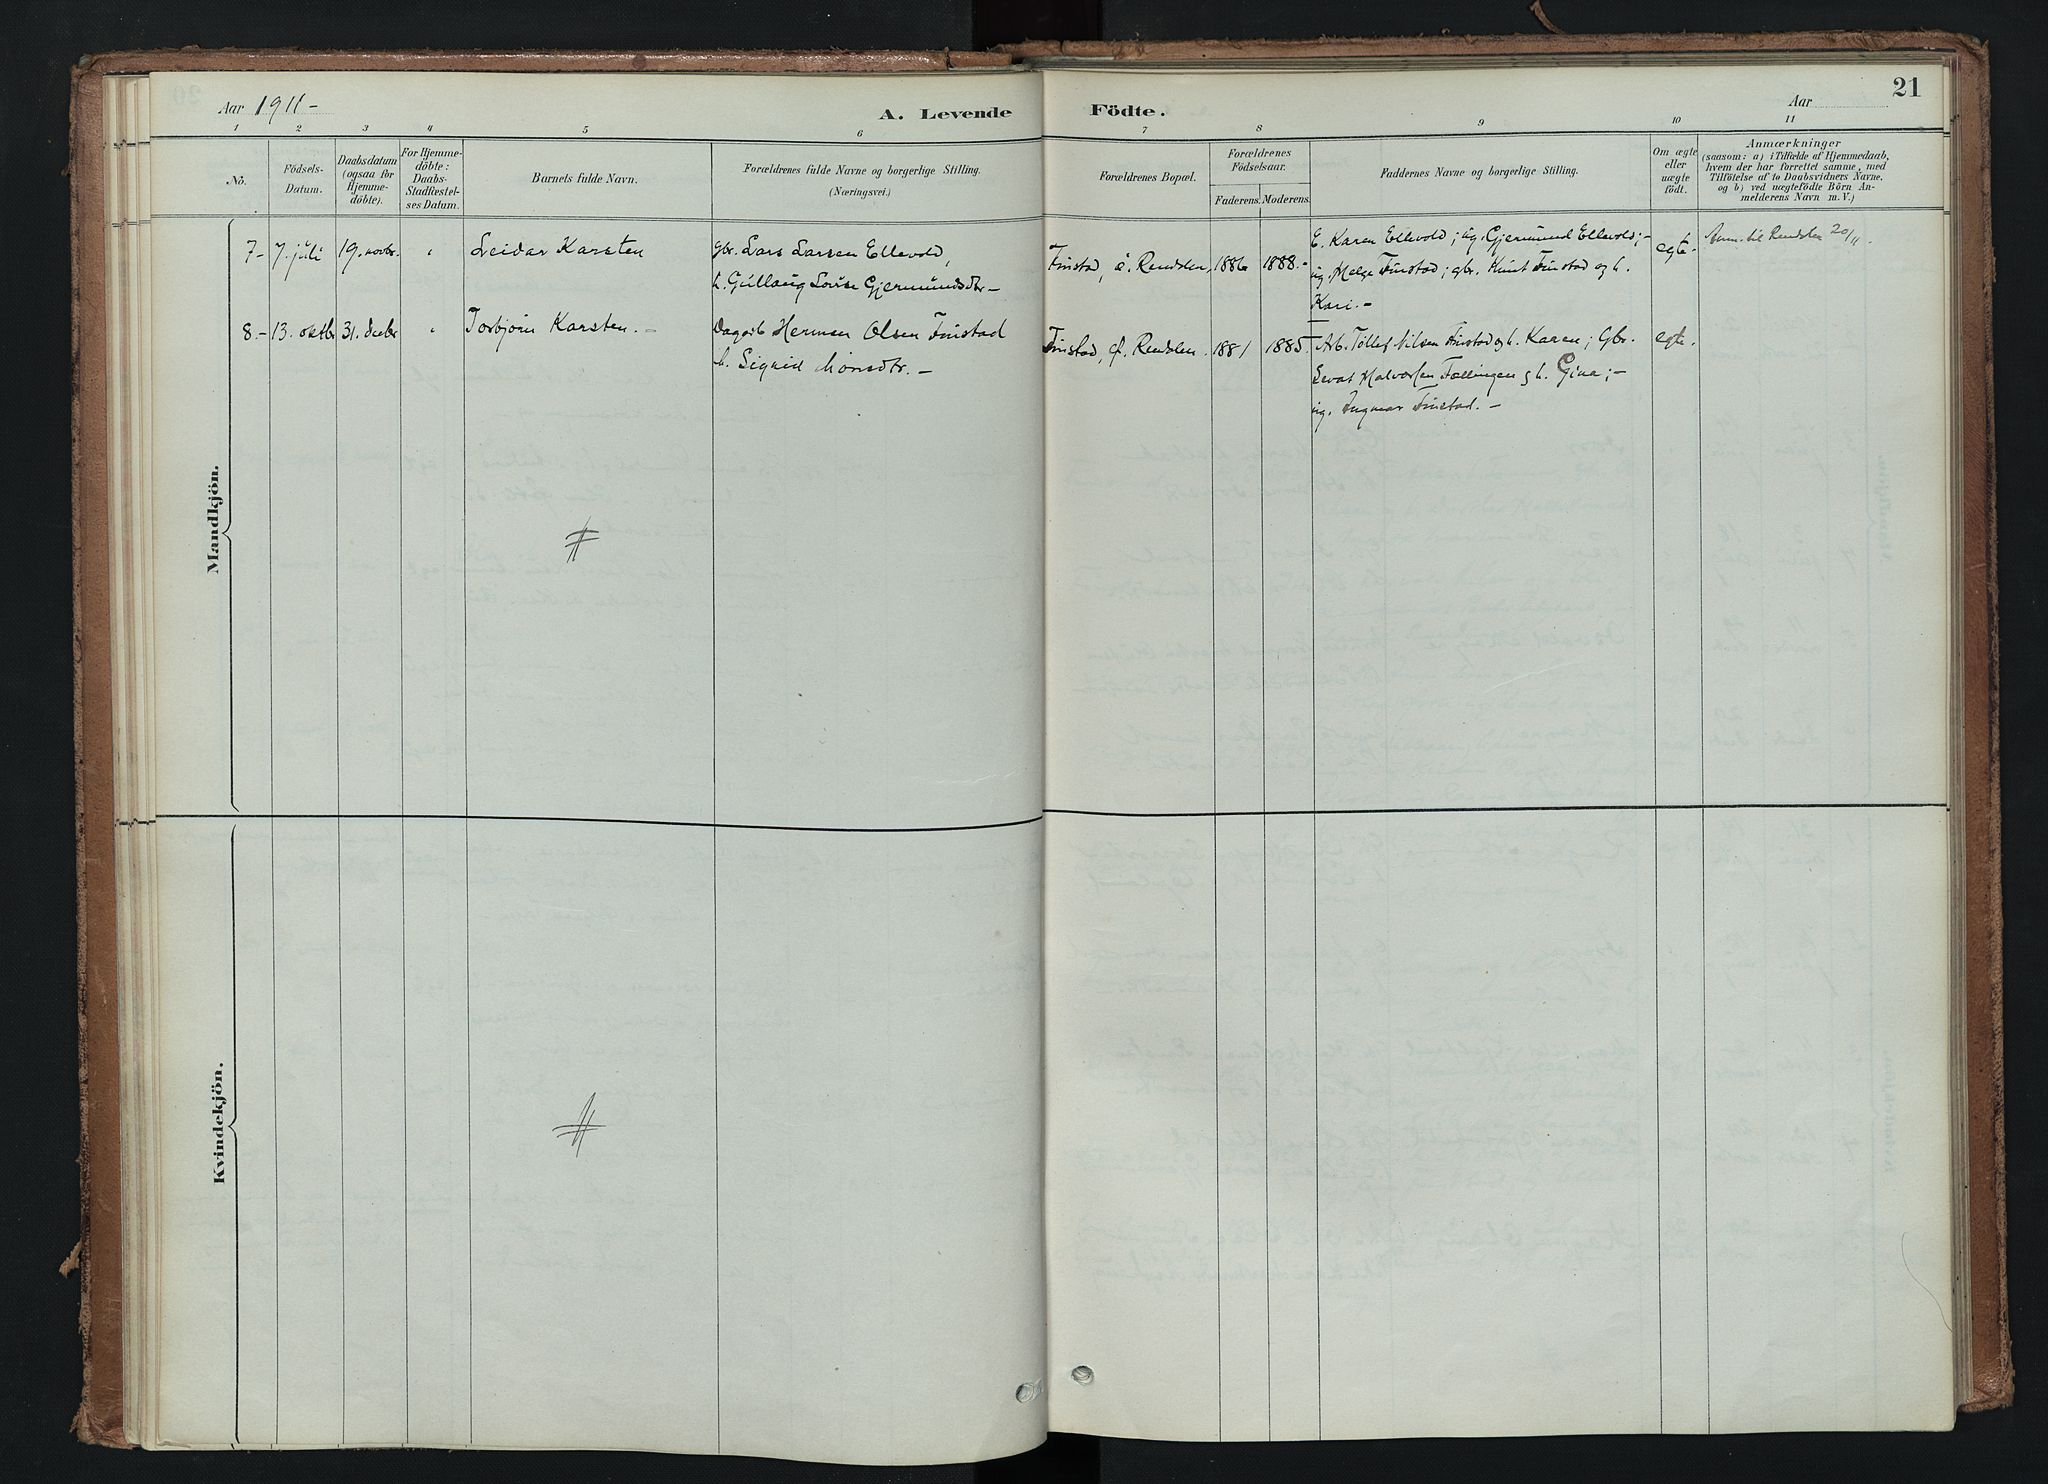 Aar 1911-
A. Levende
Födte.
Aar
21
1 2 3 4 5 6 7 8 9 10 11
No.
Födsels-
Datum.
Daabsdatum
(ogsaa for
Hjemme-
döbte).
For Hjemme-
döbte:
Daabs-
Stadfæstel-
ses Datum.
Barnets fulde Navn.
Forældrenes fulde Navne og borgerlige Stilling.
(Næringsvei.)
Forældrenes Bopæl.
Forældrenes
Födselsaar.
Faderens. Moderens.
Faddernes Navne og borgerlige Stilling.
Om ægte
eller
uægte
födt.
Anmærkninger
(saasom: a) i Tilfælde af Hjemmedaab,
hvem der har forrettet samme, med
Tilföielse af to Daabsvidners Navne,
og b) ved uægtefödte Börn An-
melderens Navn m. V.)
Mandkjön.
7- 7. juli 19. novbr. " Leidar Karsten
gbr. Lars Larsen Ellevold,
h. Gullaug Lovise Gjermundsdtr-
Finstad, ö. Rendalen, 1886 1888.-
E. Karen Ellevold; ug. Gjermund Ellevold;-
ug. Helge Finstad; gbr. Knut Finstad og h.
Kari.-
egte-
Anm. til Rendalen 20/11.
8.- 13. oktbr 31. decbr " Torbjörn Karsten.-
Dagarb Herman Olsen Finstad
h. Sigrid Monsdtr.-
Finstad, ö. Rendalen. 1881 1885.
Arb. Tollef Nilsen Finstad og h. Karen; Gbr.
Sevat Halvorsen Fællingen og h. Gina;-
ug. Ingvar Finstad.-
egte.
#
Kvindekjön.
#